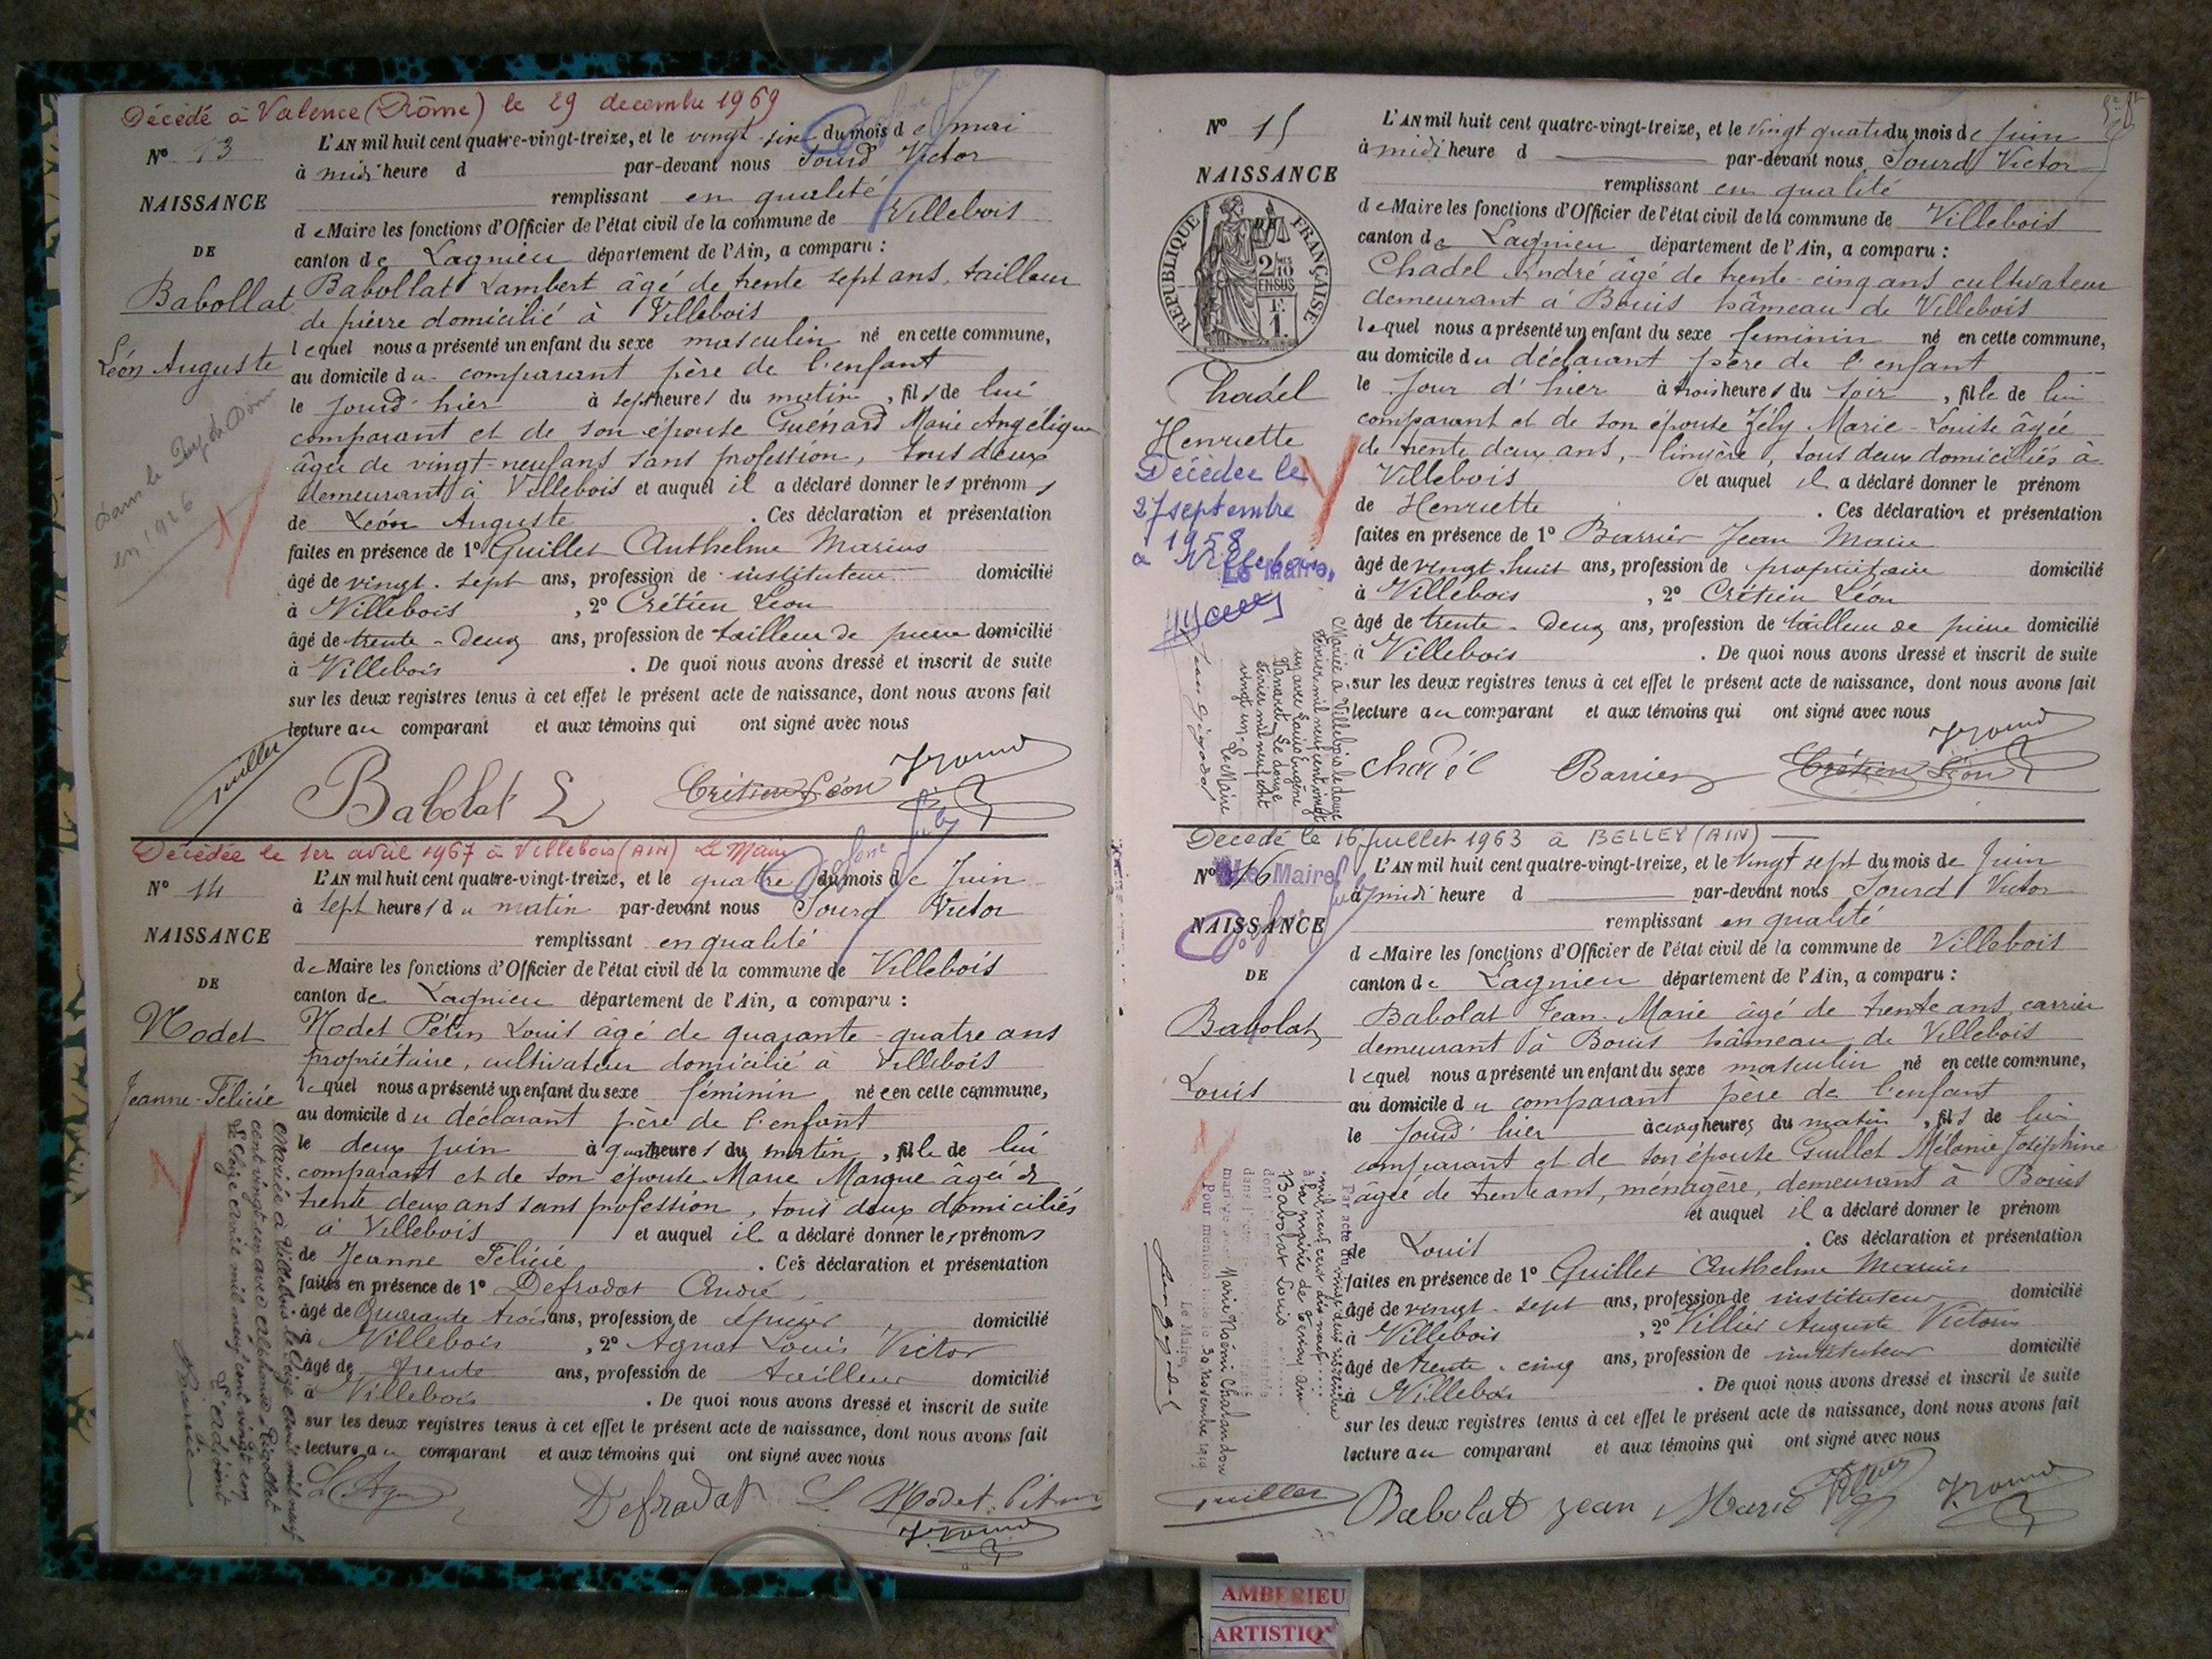 Décédé à Valence (Drôme) le 29 decembre 1969
N° 13
L'AN mil huit cent quatre-vingt-treize, et le vingt-six du mois de mai
à midi heure d par-devant nous Jourd Victor
remplissant en qualité
NAISSANCE
de Maire les fonctions d'Officier de l'état civil de la commune de Villebois
DE
canton de Lagnieu département de l'Ain, a comparu :
Babollat
Babollat Lambert âgé de trente sept ans, tailleur
de pierre domicilié à Villebois
lequel nous a présenté un enfant du sexe masculin né en cette commune,
Léon Auguste
au domicile du comparant père de l'enfant
le jourd'hier à sept heures du matin, fils de lui
comparant et de son épouse Guénard Marie Angélique
âgée de vingt-neuf ans sans profession, tous deux
demeurant à Villebois et auquel il a déclaré donner les prénoms
de Léon Auguste . Ces déclaration et présentation
Dans le Puy de Dôme
en 1926
faites en présence de 1° Guillet Anthelme Marius
âgé de vingt-sept ans, profession de instituteur domicilié
à Villebois , 2° Crétien Léon
âgé de trente-deux ans, profession de tailleur de pierre domicilié
à Villebois . De quoi nous avons dressé et inscrit de suite
sur les deux registres tenus à cet effet le présent acte de naissance, dont nous avons fait
lecture au comparant et aux témoins qui ont signé avec nous
Guillet
Babolat L
Crétien Léon
Décédée le 1er avril 1967 à Villebois (AIN) Le Maire
N° 14
L'AN mil huit cent quatre-vingt-treize, et le quatre du mois de Juin
à sept heures du matin par-devant nous Jourd Victor
remplissant en qualité
NAISSANCE
de Maire les fonctions d'Officier de l'état civil de la commune de Villebois
DE
canton de Lagnieu département de l'Ain, a comparu :
Modet
Modet Pétin Louis âgé de quarante-quatre ans
propriétaire, cultivateur domicilié à Villebois
Jeanne-Félicie
lequel nous a présenté un enfant du sexe féminin née en cette commune,
au domicile du déclarant père de l'enfant
le deux juin à quatre heures du matin, fille de lui
comparant et de son épouse Marie Marque âgée de
trente deux ans sans profession, tous deux domiciliés
à Villebois et auquel il a déclaré donner les prénoms
de Jeanne Félicie . Ces déclaration et présentation
faites en présence de 1° Defrodat André
âgé de Quarante trois ans, profession de épicier domicilié
à Villebois , 2° Agnat Louis Victor
âgé de trente ans, profession de tailleur domicilié
à Villebois . De quoi nous avons dressé et inscrit de suite
sur les deux registres tenus à cet effet le présent acte de naissance, dont nous avons fait
lecture au comparant et aux témoins qui ont signé avec nous
Mariée à Villebois le
L'adjoint
Defrodat
L. Modet Pétin
N° 15
L'AN mil huit cent quatre-vingt-treize, et le vingt quatre du mois de juin
à midi heure d par-devant nous Jourd Victor
NAISSANCE
remplissant en qualité
de Maire les fonctions d'Officier de l'état civil de la commune de Villebois
canton de Lagnieu département de l'Ain, a comparu :
RÉPUBLIQUE FRANÇAISE
2/10 EN SUS
1F.
Chadel André âgé de trente-cinq ans cultivateur
demeurant à Bouis hâmeau de Villebois
lequel nous a présenté un enfant du sexe feminin né en cette commune,
au domicile du déclarant père de l'enfant
Chadel
le jour d'hier à trois heures du soir, fille de lui
Henriette
comparant et de son épouse Zély Marie-Louise âgée
de trente deux ans, lingère, tous deux domiciliés à
Villebois et auquel il a déclaré donner le prénom
de Henriette . Ces déclaration et présentation
Décédée le
27 septembre
1958
à Villebois
Le Maire,
faites en présence de 1° Barrier Jean Marie
âgé de vingt-huit ans, profession de propriétaire domicilié
à Villebois , 2° Crétien Léon
âgé de trente-deux ans, profession de tailleur de pierre domicilié
à Villebois . De quoi nous avons dressé et inscrit de suite
sur les deux registres tenus à cet effet le présent acte de naissance, dont nous avons fait
lecture au comparant et aux témoins qui ont signé avec nous
Mariée à Villebois le douze
février mil neuf cent vingt
un avec Louis Eugène
Le douze
février mil neuf cent
vingt un. Le Maire
Chadel
Barrier
Crétien Léon
Décédé le 16 Juillet 1963 à BELLEY (AIN)
N° 16
Le Maire,
L'AN mil huit cent quatre-vingt-treize, et le Vingt sept du mois de Juin
à midi heure d par-devant nous Jourd Victor
remplissant en qualité
NAISSANCE
de Maire les fonctions d'Officier de l'état civil de la commune de Villebois
DE
canton de Lagnieu département de l'Ain, a comparu :
Babolat
Babolat Jean-Marie âgé de trente ans carrier
demeurant à Bouis hâmeau de Villebois
Louis
lequel nous a présenté un enfant du sexe masculin né en cette commune,
au domicile du comparant père de l'enfant
le jourd'hier à cinq heures du matin, fils de lui
comparant et de son épouse Guillet Mélanie Joséphine
âgée de trente ans, ménagère, demeurant à Bouis
et auquel il a déclaré donner le prénom
de Louis . Ces déclaration et présentation
faites en présence de 1° Guillet Anthelme Marius
âgé de vingt-sept ans, profession de instituteur domicilié
à Villebois , 2° Villier Auguste Victorin
âgé de trente-cinq ans, profession de instituteur domicilié
à Villebois . De quoi nous avons dressé et inscrit de suite
sur les deux registres tenus à cet effet le présent acte de naissance, dont nous avons fait
lecture au comparant et aux témoins qui ont signé avec nous
Par acte du vingt deux novembre
mil neuf cent dix neuf
à la mairie de Ain
Babolat Louis
Marie Noémi Chalandon
Pour mention le 30 novembre 1919
Le Maire,
Guillet
Babolat Jean Marie
AMBERIEU
ARTISTIQ